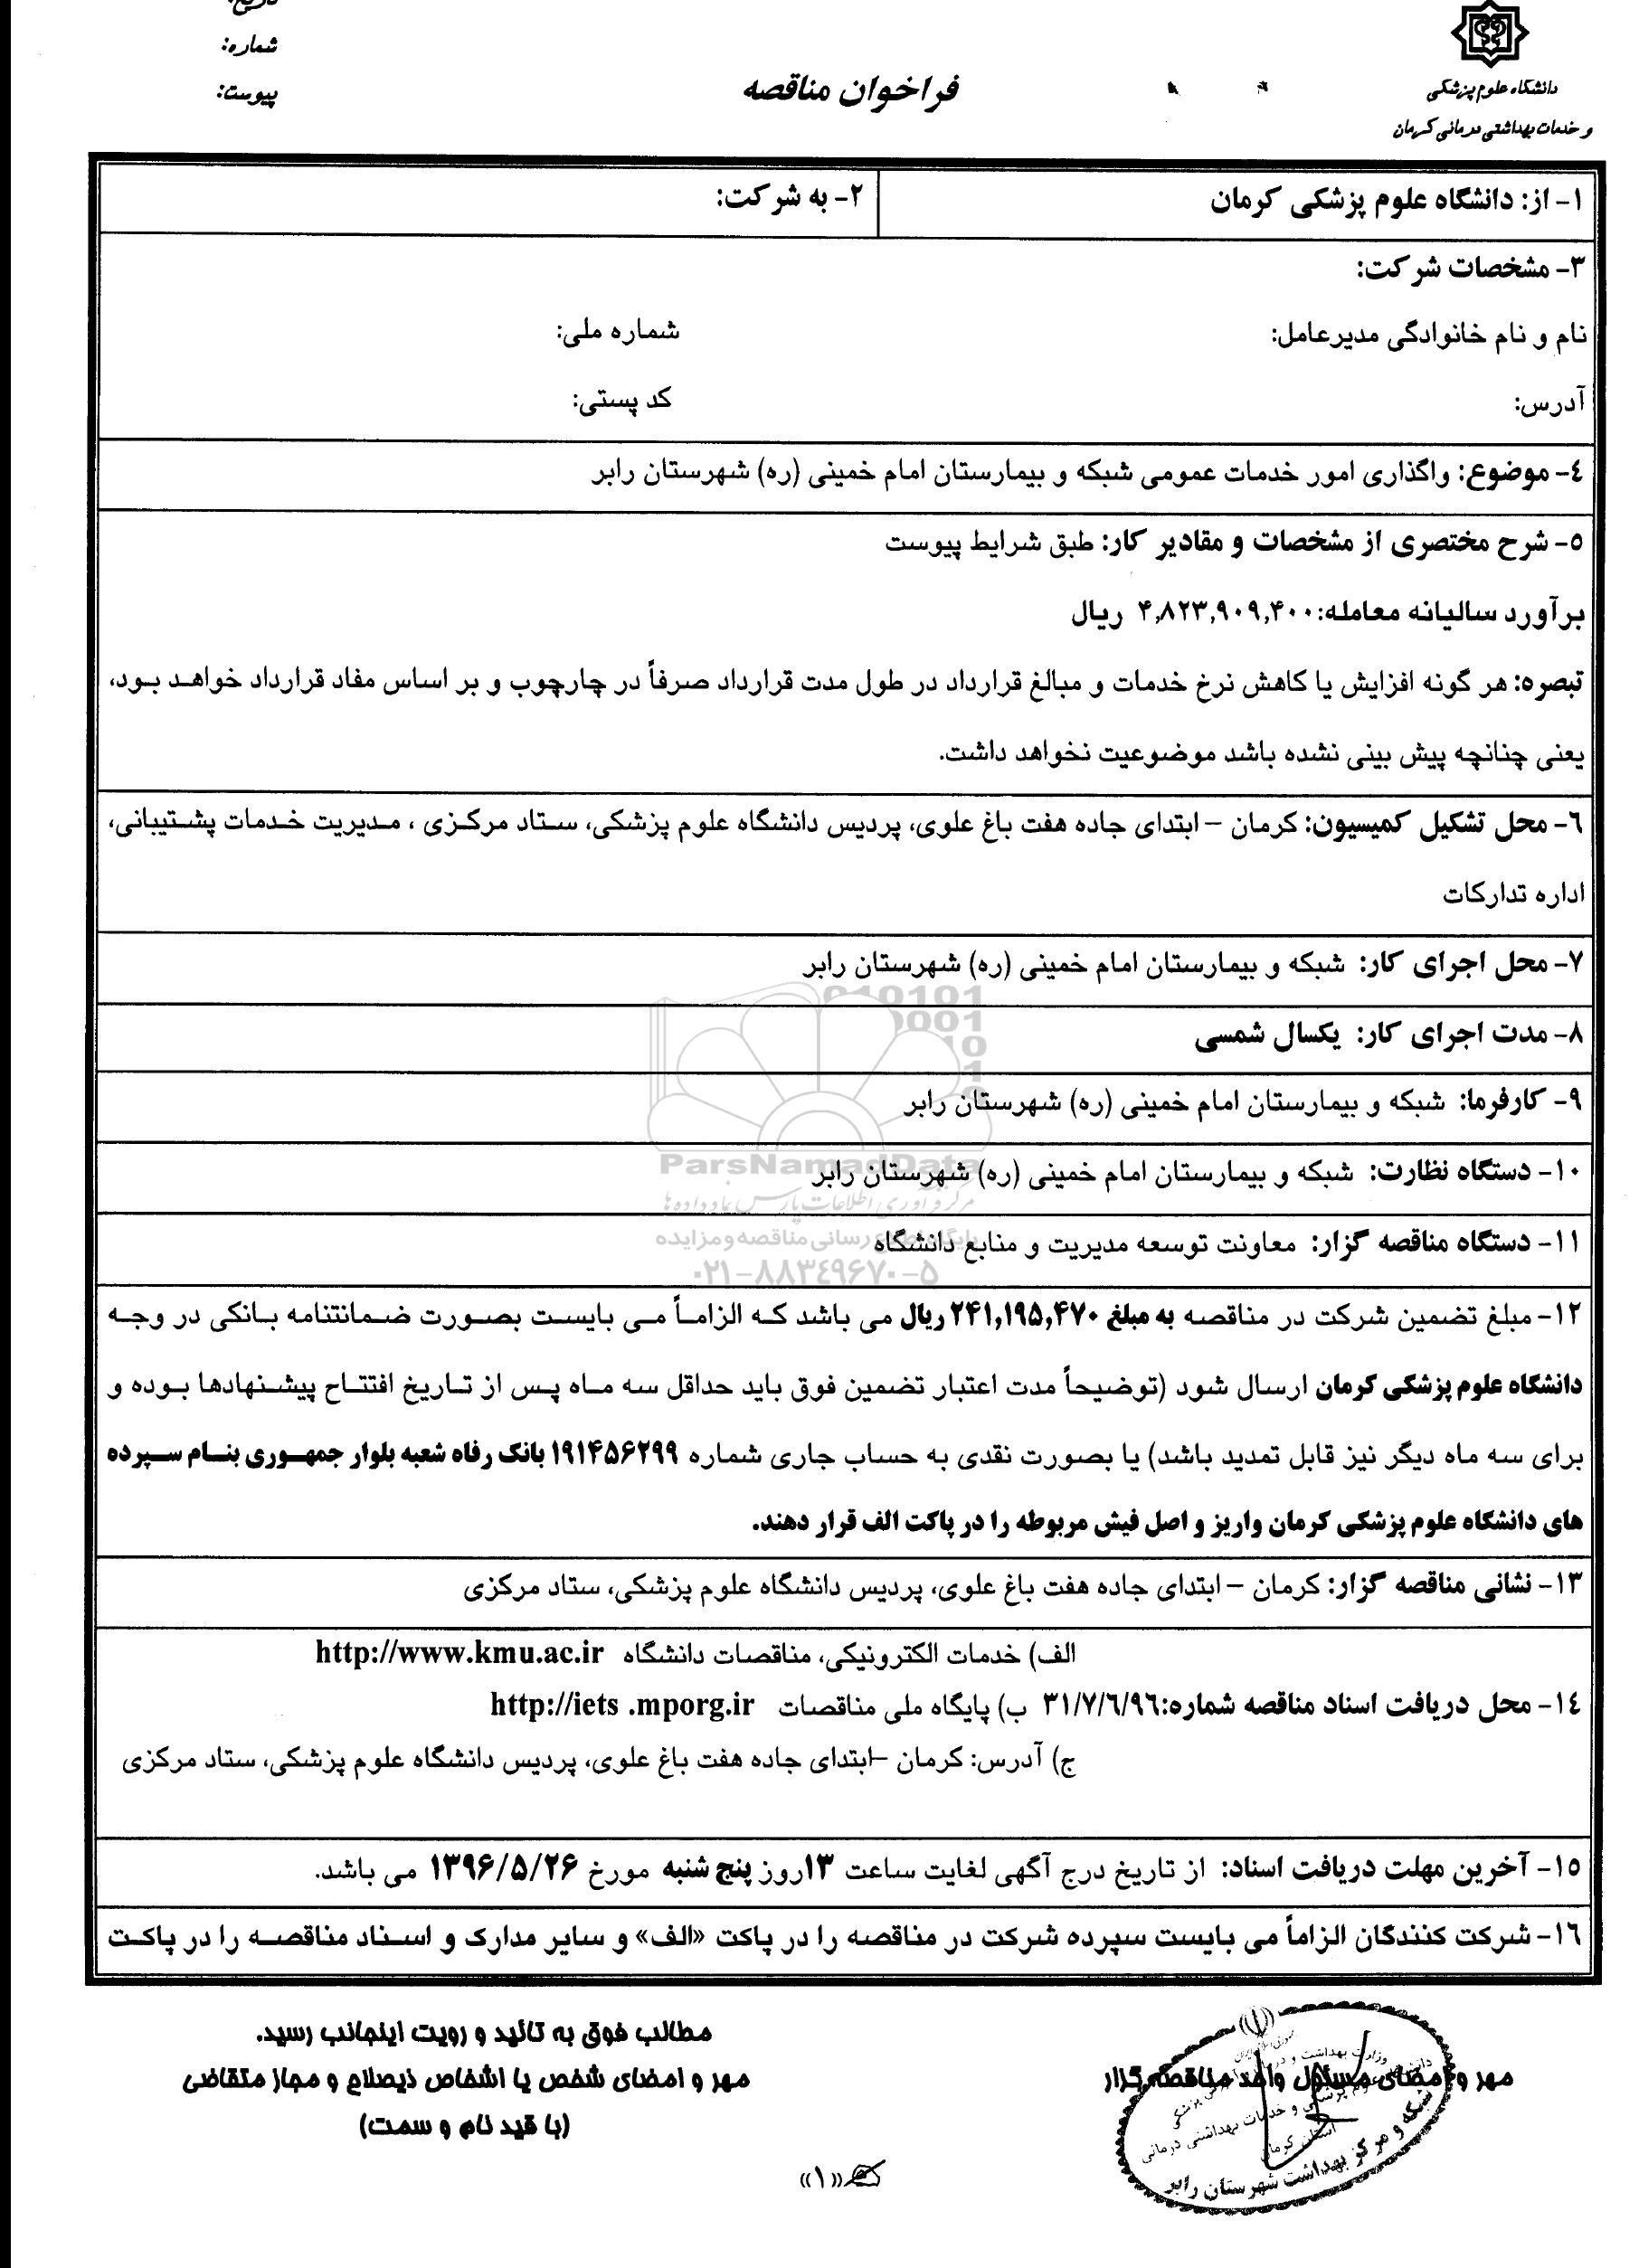 تاریخ:
شماره:
پیوست:
دانشگاه علوم پزشکی
و خدمات بهداشتی درمانی کرمان
فراخوان مناقصه
۱- از: دانشگاه علوم پزشکی کرمان
۲- به شرکت:
۳- مشخصات شرکت:
نام و نام خانوادگی مدیرعامل:
شماره ملی:
آدرس:
کد پستی:
۴- موضوع: واگذاری امور خدمات عمومی شبکه و بیمارستان امام خمینی (ره) شهرستان رابر
۵- شرح مختصری از مشخصات و مقادیر کار: طبق شرایط پیوست
برآورد سالیانه معامله: ۴,۸۲۳,۹۰۹,۴۰۰ ریال
تبصره: هر گونه افزایش یا کاهش نرخ خدمات و مبالغ قرارداد در طول مدت قرارداد صرفاً در چارچوب و بر اساس مفاد قرارداد خواهد بود،
یعنی چنانچه پیش بینی نشده باشد موضوعیت نخواهد داشت.
۶- محل تشکیل کمیسیون: کرمان – ابتدای جاده هفت باغ علوی، پردیس دانشگاه علوم پزشکی، ستاد مرکزی ، مدیریت خدمات پشتیبانی،
اداره تدارکات
۷- محل اجرای کار: شبکه و بیمارستان امام خمینی (ره) شهرستان رابر
۸- مدت اجرای کار: یکسال شمسی
۹- کارفرما: شبکه و بیمارستان امام خمینی (ره) شهرستان رابر
۱۰- دستگاه نظارت: شبکه و بیمارستان امام خمینی (ره) شهرستان رابر
ParsNamadData
۱۱- دستگاه مناقصه گزار: معاونت توسعه مدیریت و منابع دانشگاه
۰۲۱-۸۸۳۴۹۶۷۰-۵
۱۲- مبلغ تضمین شرکت در مناقصه به مبلغ ۲۴۱,۱۹۵,۴۷۰ ریال می باشد که الزاماً می بایست بصورت ضمانتنامه بانکی در وجه
دانشگاه علوم پزشکی کرمان ارسال شود (توضیحاً مدت اعتبار تضمین فوق باید حداقل سه ماه پس از تاریخ افتتاح پیشنهادها بوده و
برای سه ماه دیگر نیز قابل تمدید باشد) یا بصورت نقدی به حساب جاری شماره ۱۹۱۴۵۶۲۹۹ بانک رفاه شعبه بلوار جمهوری بنام سپرده
های دانشگاه علوم پزشکی کرمان واریز و اصل فیش مربوطه را در پاکت الف قرار دهند.
۱۳- نشانی مناقصه گزار: کرمان – ابتدای جاده هفت باغ علوی، پردیس دانشگاه علوم پزشکی، ستاد مرکزی
الف) خدمات الکترونیکی، مناقصات دانشگاه http://www.kmu.ac.ir
۱۴- محل دریافت اسناد مناقصه شماره: ۳۱/۷/۶/۹۶ ب) پایگاه ملی مناقصات http://iets .mporg.ir
ج) آدرس: کرمان –ابتدای جاده هفت باغ علوی، پردیس دانشگاه علوم پزشکی، ستاد مرکزی
۱۵- آخرین مهلت دریافت اسناد: از تاریخ درج آگهی لغایت ساعت ۱۳روز پنج شنبه مورخ ۱۳۹۶/۵/۲۶ می باشد.
۱۶- شرکت کنندگان الزاماً می بایست سپرده شرکت در مناقصه را در پاکت «الف» و سایر مدارک و اسناد مناقصه را در پاکت
مهر و امضای مسئول واحد مناقصه گزار
شبکه و مرکز بهداشت شهرستان رابر
مطالب فوق به تائید و رویت اینجانب رسید.
مهر و امضای شخص یا اشخاص ذیصلاح و مجاز متقاضی
(با قید نام و سمت)
«۱»